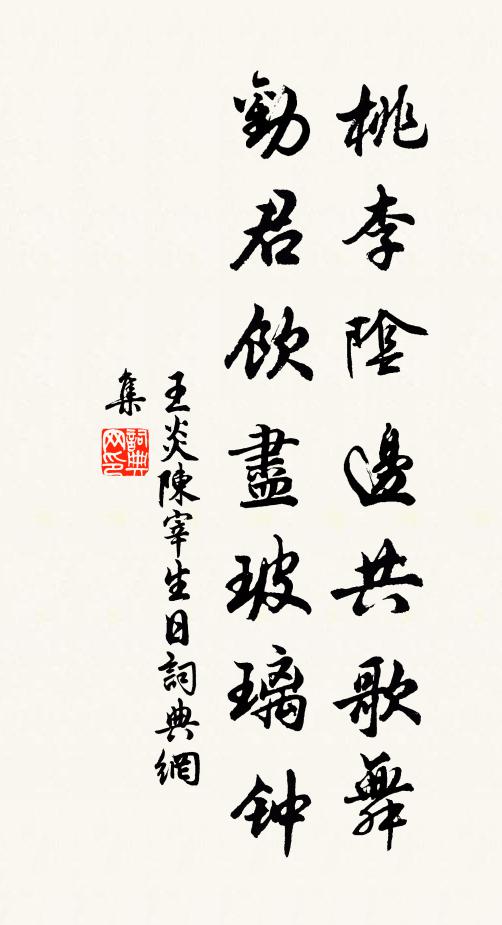 桃李陰邊共歌舞
勸君飲盡玻璃钟
王炎陳宰生日詞典網
集
詞典
网印